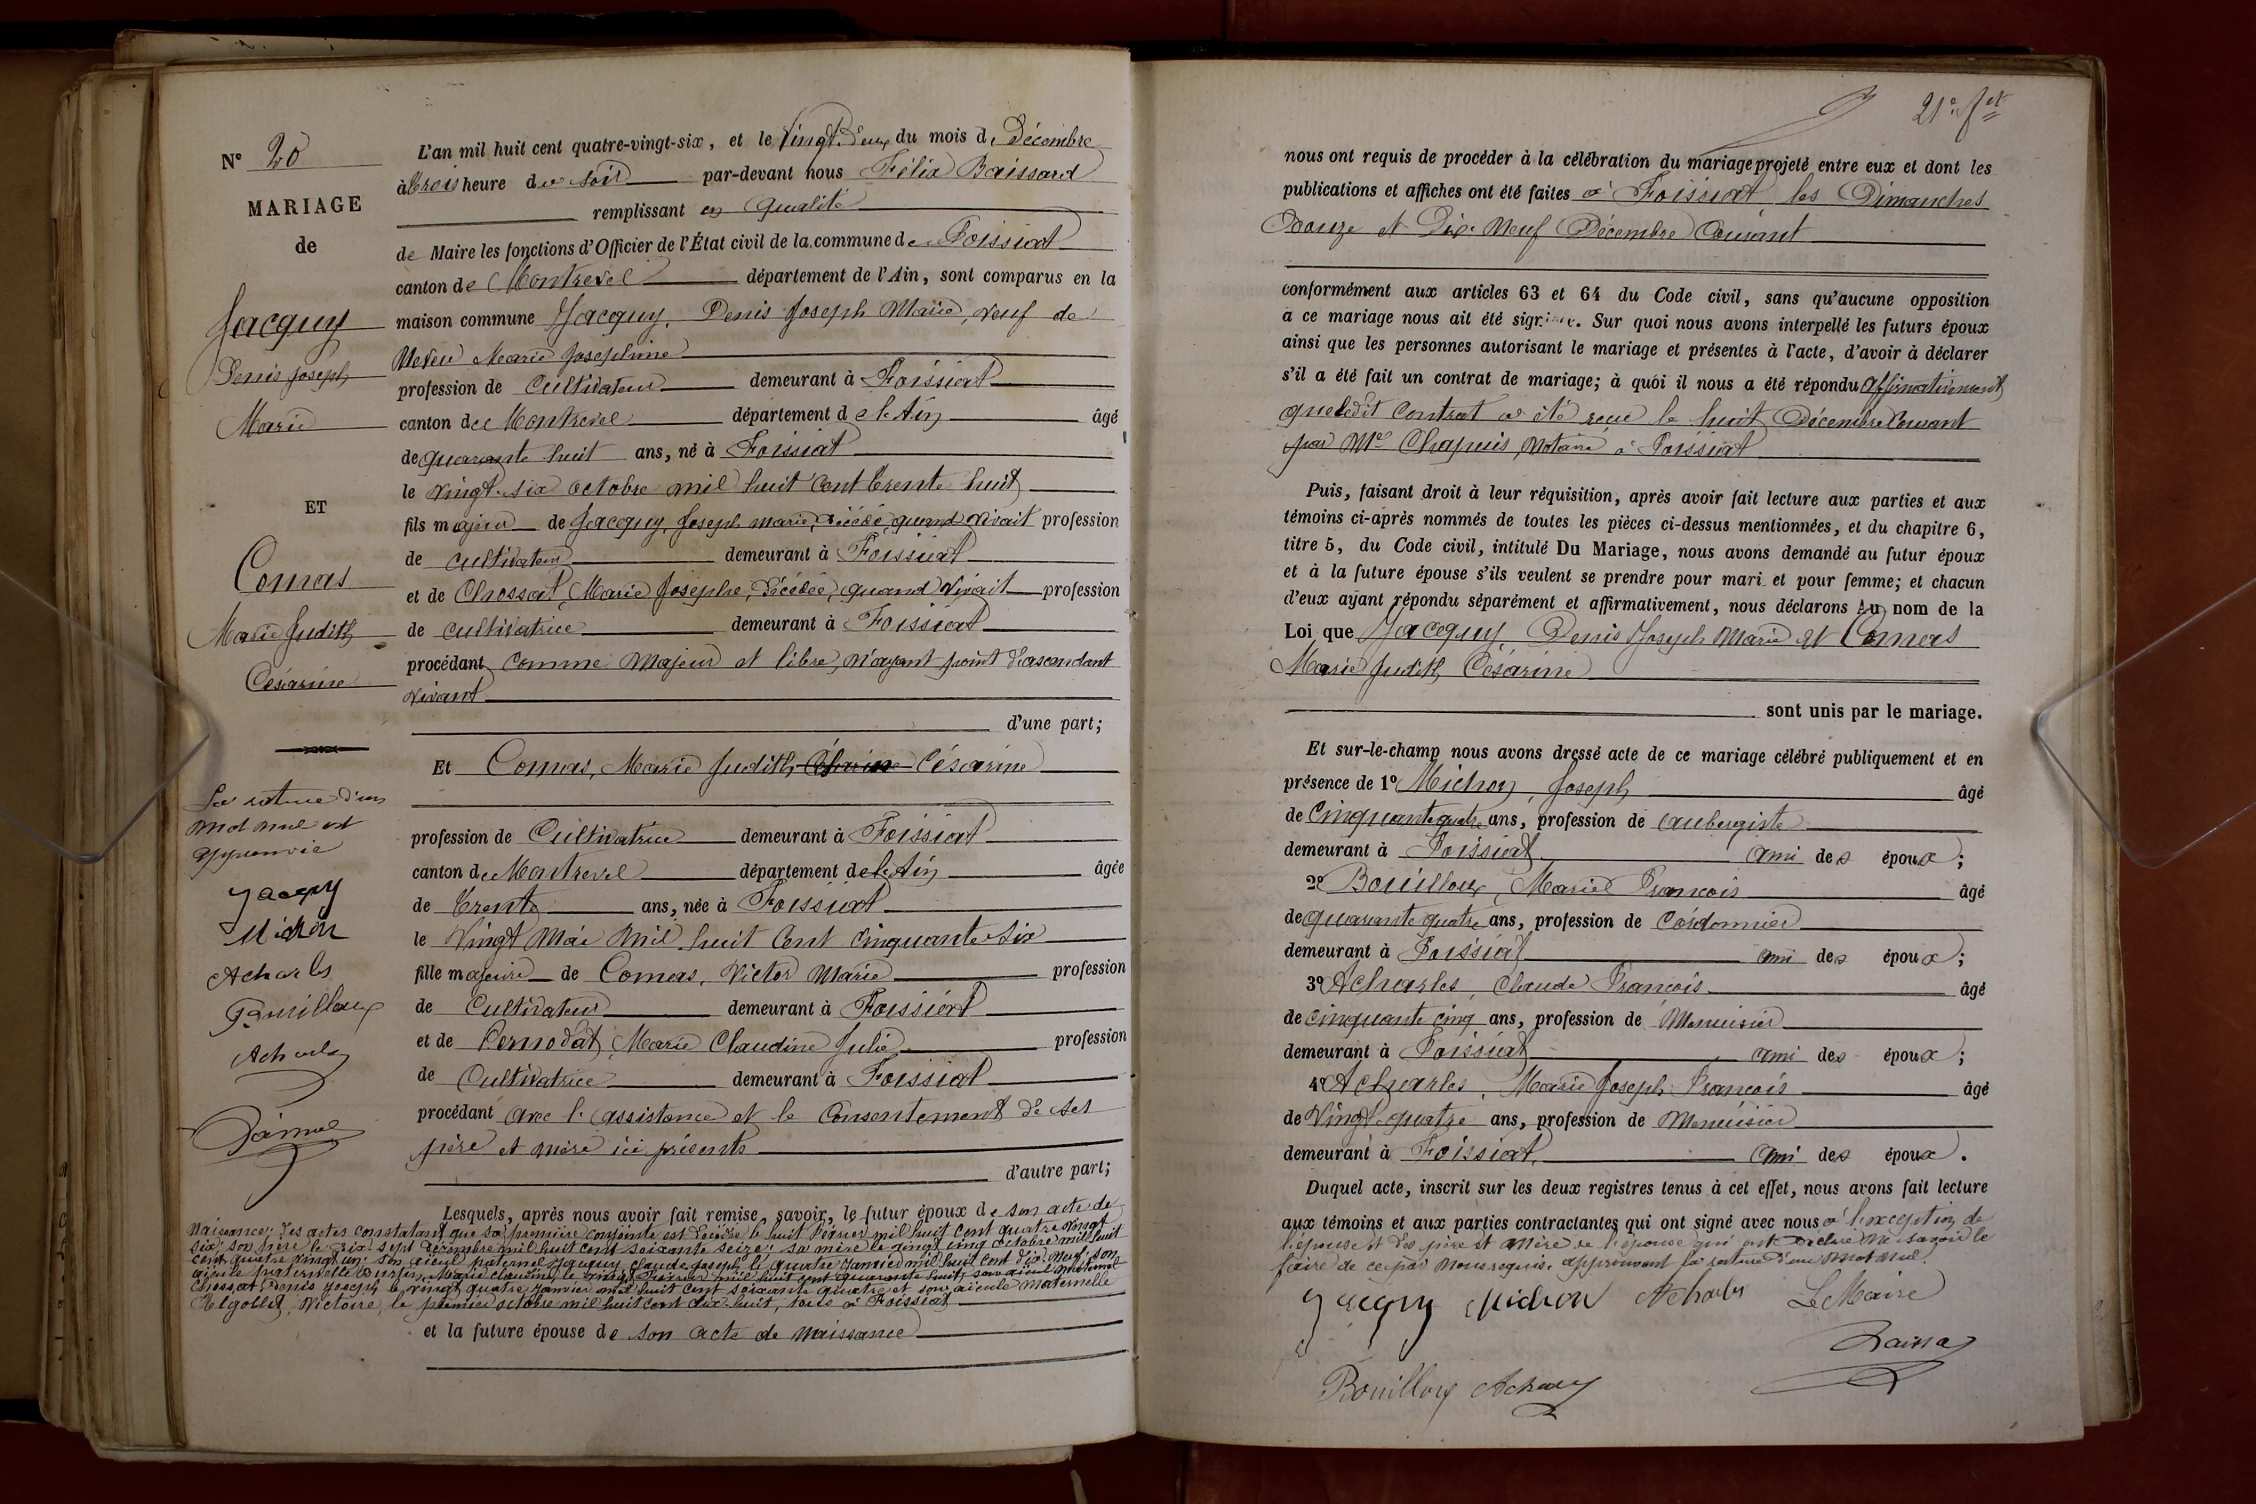 N° 20
MARIAGE
de
Jacquy
Denis Joseph
Marie
ET
Comas
Marie Judith
Césarine
La rature d'un
mot nul est
approuvée
Jacquy
Michon
Acharles
Bouilloux
Acharles
L'an mil huit cent quatre-vingt-six, et le vingt deux du mois de Décembre
à trois heure du soir par-devant nous Félix Baissard
remplissant en qualité
de Maire les fonctions d'Officier de l'État civil de la commune de Foissiat
canton de Montrevel département de l'Ain, sont comparus en la
maison commune Jacquy, Denis Joseph Marie, veuf de
Neveu Marie Joséphine
profession de cultivateur demeurant à Foissiat
canton de Montrevel département de l'Ain âgé
de quarante huit ans, né à Foissiat
le vingt-six octobre mil huit cent trente huit
fils majeur de Jacquy, Joseph marie, décédé, quand vivait profession
de cultivateur demeurant à Foissiat
et de Chossat, Marie Josephe, décédée, quand vivait profession
de cultivatrice demeurant à Foissiat
procédant comme majeur et libre, n'ayant point d'ascendant
vivant
d'une part;
Et Comas, Marie Judith, Césarine
profession de Cultivatrice demeurant à Foissiat
canton de Montrevel département de l'Ain âgée
de trente ans, née à Foissiat
le vingt Mai mil huit cent cinquante six
fille majeure de Comas, Victor Marie profession
de Cultivateur demeurant à Foissiat
et de Pernodat, Marie Claudine Julie profession
de Cultivatrice demeurant à Foissiat
procédant avec l'assistance et le consentement de ses
père et mère ici présents
d'autre part;
Lesquels, après nous avoir fait remise, savoir, le futur époux de son acte de
naissance; des actes constatant que sa première conjointe est décédée le huit février mil huit cent quatre vingt
six; son père le dix sept décembre mil huit cent soixante seize; sa mère le vingt cinq octobre mil huit
cent quatre vingt un; son aïeul paternel Jacquy, claude Joseph le quatre Janvier mil huit cent dix neuf; son
aïeule paternelle Marie claudine, le vingt février mil huit cent quarante huit; son aïeul maternel
Chossat, Denis Joseph le vingt quatre Janvier mil huit cent soixante quatre et son aïeule maternelle
Victoire, le premier octobre mil huit cent dix huit, tous à Foissiat
et la future épouse de son acte de naissance
21e ft
nous ont requis de procéder à la célébration du mariage projeté entre eux et dont les
publications et affiches ont été faites à Foissiat les Dimanches
Douze et Dix Neuf Décembre Courant
conformément aux articles 63 et 64 du Code civil, sans qu'aucune opposition
à ce mariage nous ait été signifiée. Sur quoi nous avons interpellé les futurs époux
ainsi que les personnes autorisant le mariage et présentes à l'acte, d'avoir à déclarer
s'il a été fait un contrat de mariage; à quoi il nous a été répondu affirmativement
que ledit Contrat a été reçu le huit Décembre Courant
par Me Chapuis, Notaire à Foissiat
Puis, faisant droit à leur réquisition, après avoir fait lecture aux parties et aux
témoins ci-après nommés de toutes les pièces ci-dessus mentionnées, et du chapitre 6,
titre 5, du Code civil, intitulé Du Mariage, nous avons demandé au futur époux
et à la future épouse s'ils veulent se prendre pour mari et pour femme; et chacun
d'eux ayant répondu séparément et affirmativement, nous déclarons au nom de la
Loi que Jacquy Denis Joseph Marie et Comas
Marie Judith Césarine
sont unis par le mariage.
Et sur-le-champ nous avons dressé acte de ce mariage célébré publiquement et en
présence de 1° Michon, Joseph âgé
de cinquante quatre ans, profession de aubergiste
demeurant à Foissiat ami des époux;
2° Bouilloux, Marie François âgé
de quarante quatre ans, profession de Cordonnier
demeurant à Foissiat ami des époux;
3° Acharles, Claude François âgé
de cinquante cinq ans, profession de Menuisier
demeurant à Foissiat ami des époux;
4° Acharles, Marie Joseph François âgé
de vingt-quatre ans, profession de Menuisier
demeurant à Foissiat ami des époux.
Duquel acte, inscrit sur les deux registres tenus à cet effet, nous avons fait lecture
aux témoins et aux parties contractantes qui ont signé avec nous à l'exception de
l'épouse et des père et mère de l'épouse qui ont déclaré ne savoir le
faire de ce par nous requis. approuvant la rature d'un mot nul.
Jacquy Michon Acharles Le Maire
Bouilloux Acharles